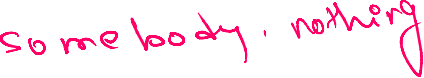 somebody. nothing